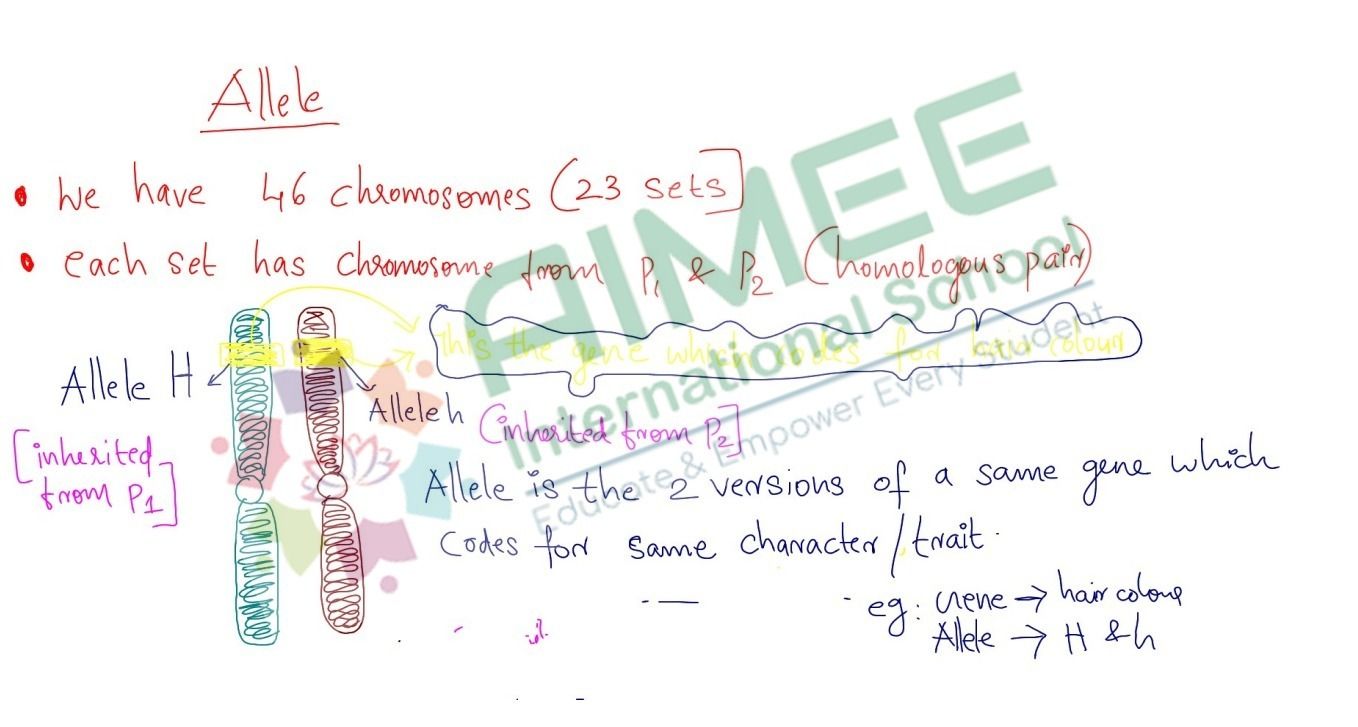 Allele
• We have 46 chromosomes (23 sets]
• each set has chromosome from P1 & P2 (homologous pair)
This the gene which codes for hair colour
Allele H
Allele h (inherited from P2]
[inherited from P1]
Allele is the 2 versions of a same gene which
Codes for same character/trait.
eg: Gene → hair colour
Allele → H & h
AIMEE
International School
Educate & Empower Every Student